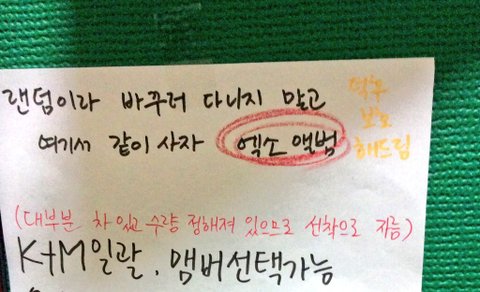 랜덤이라 바꾸러 다니지 말고
여기서 같이 사자 엑소 앨범
덕후
보호
해드림
(대부분 차 있고 수량 정해져 있으므로 선착으로 지름)
K+M일괄. 맴버선택가능